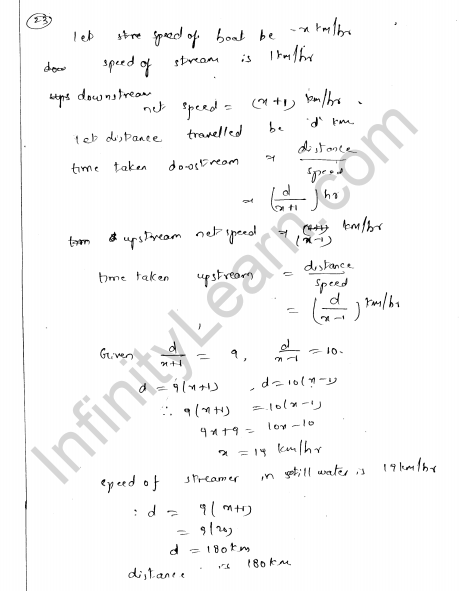 23
let the speed of boat be x km/hr
speed of stream is 1 km/hr
downstream
net speed = (x+1) km/hr.
let distance travelled be 'd' km
time taken downstream = distance/speed
= (d/(x+1)) hr
upstream net speed = (x-1) km/hr
time taken upstream = distance/speed
= (d/(x-1)) km/hr
Given d/(x+1) = 9, d/(x-1) = 10.
d = 9(x+1) , d = 10(x-1)
∴ 9(x+1) = 10(x-1)
9x+9 = 10x-10
x = 19 km/hr
speed of streamer in still water is 19 km/hr
: d = 9(x+1)
= 9(20)
d = 180 km
distance is 180 km
InfinityLearn.com